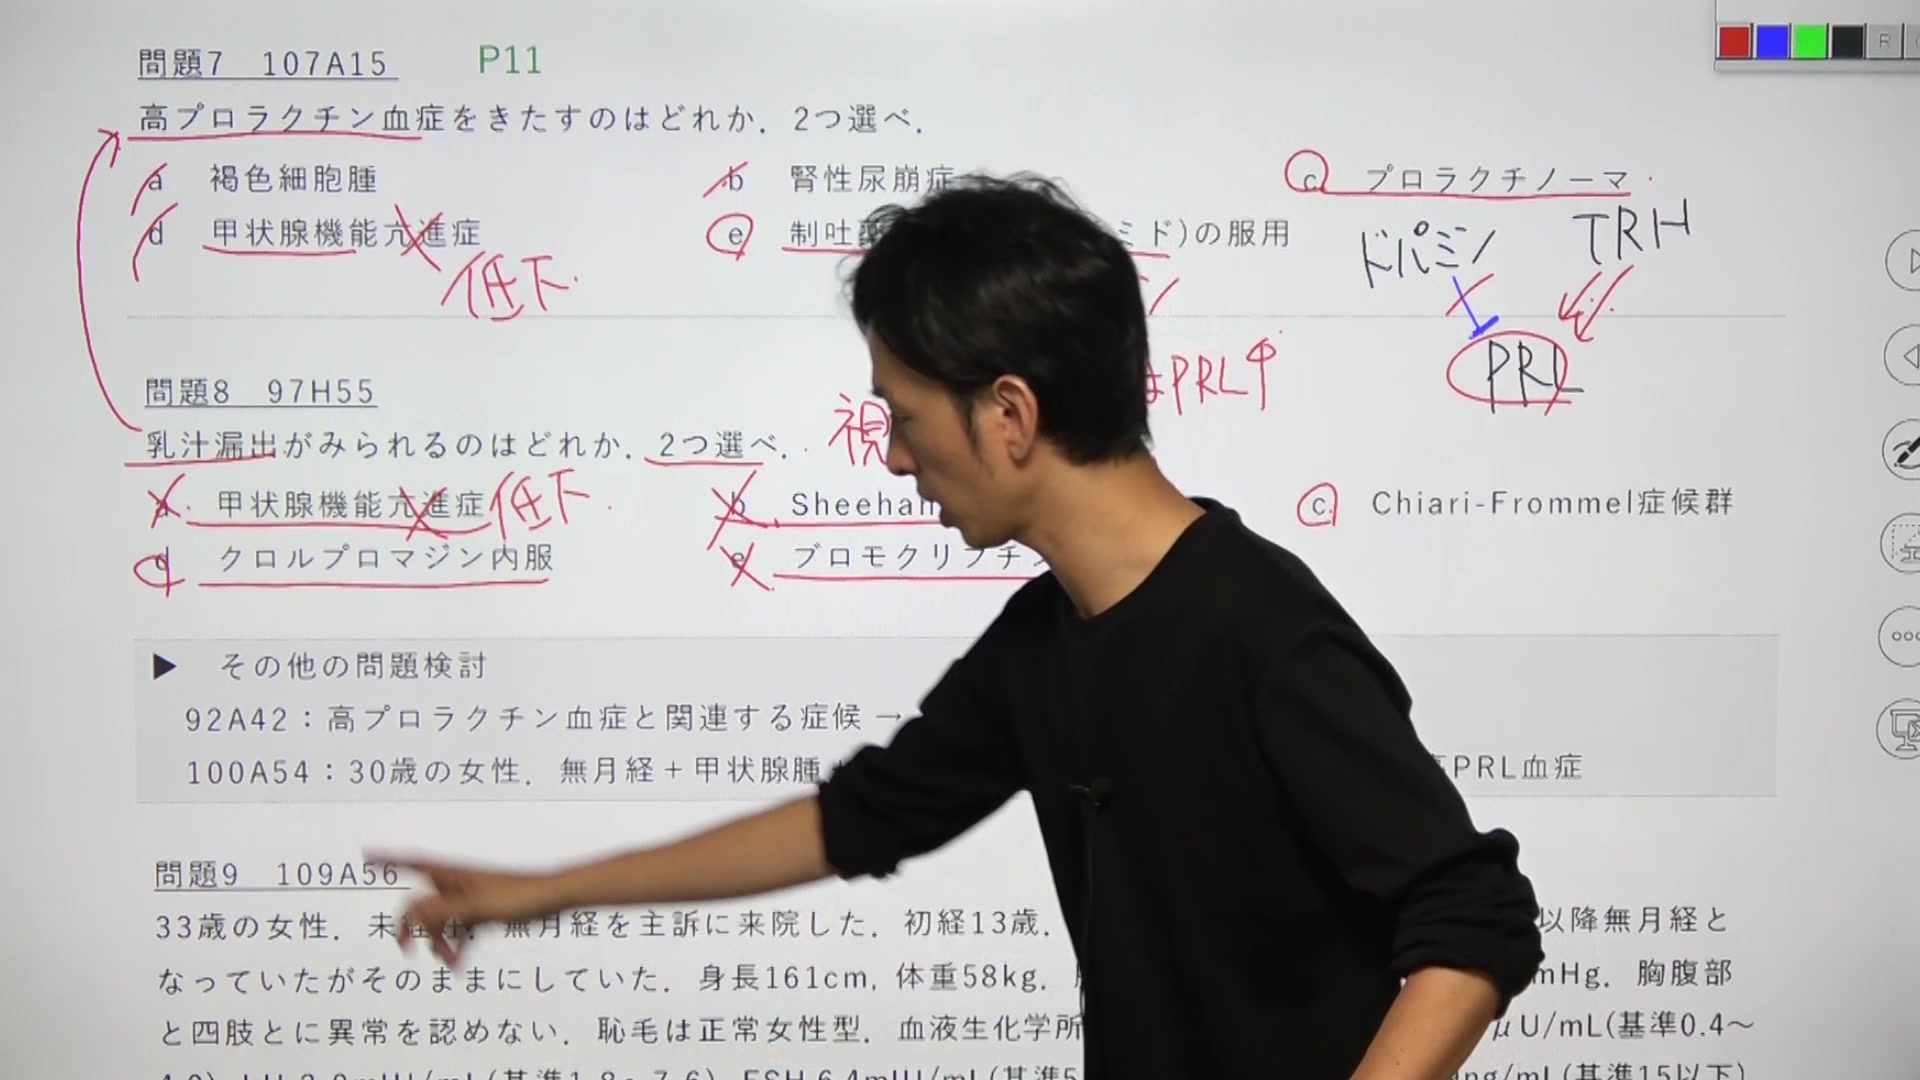 問題7 107A15 P11
高プロラクチン血症をきたすのはどれか. 2つ選べ.
a 褐色細胞腫 b 腎性尿崩症 c プロラクチノーマ
d 甲状腺機能亢進症 e 制吐 ミド)の服用
低下
ドパミン TRH
PRL
PRL↑
問題8 97H55
乳汁漏出がみられるのはどれか. 2つ選べ.
視
a 甲状腺機能亢進症 低下 b Sheehan c Chiari-Frommel症候群
d クロルプロマジン内服 e ブロモクリプチ
▶ その他の問題検討
92A42:高プロラクチン血症と関連する症候→
100A54:30歳の女性. 無月経+甲状腺腫 高PRL血症
問題9 109A56
33歳の女性. 未経妊. 無月経を主訴に来院した. 初経13歳. 以降無月経と
なっていたがそのままにしていた. 身長161cm, 体重58kg. mHg. 胸腹部
と四肢とに異常を認めない. 恥毛は正常女性型. 血液生化学所 μU/mL(基準0.4〜
4.0), LH 2.0mIU/mL(基準1.8〜7.6), FSH 6.4mIU/mL(基準5 ng/mL(基準15以下)